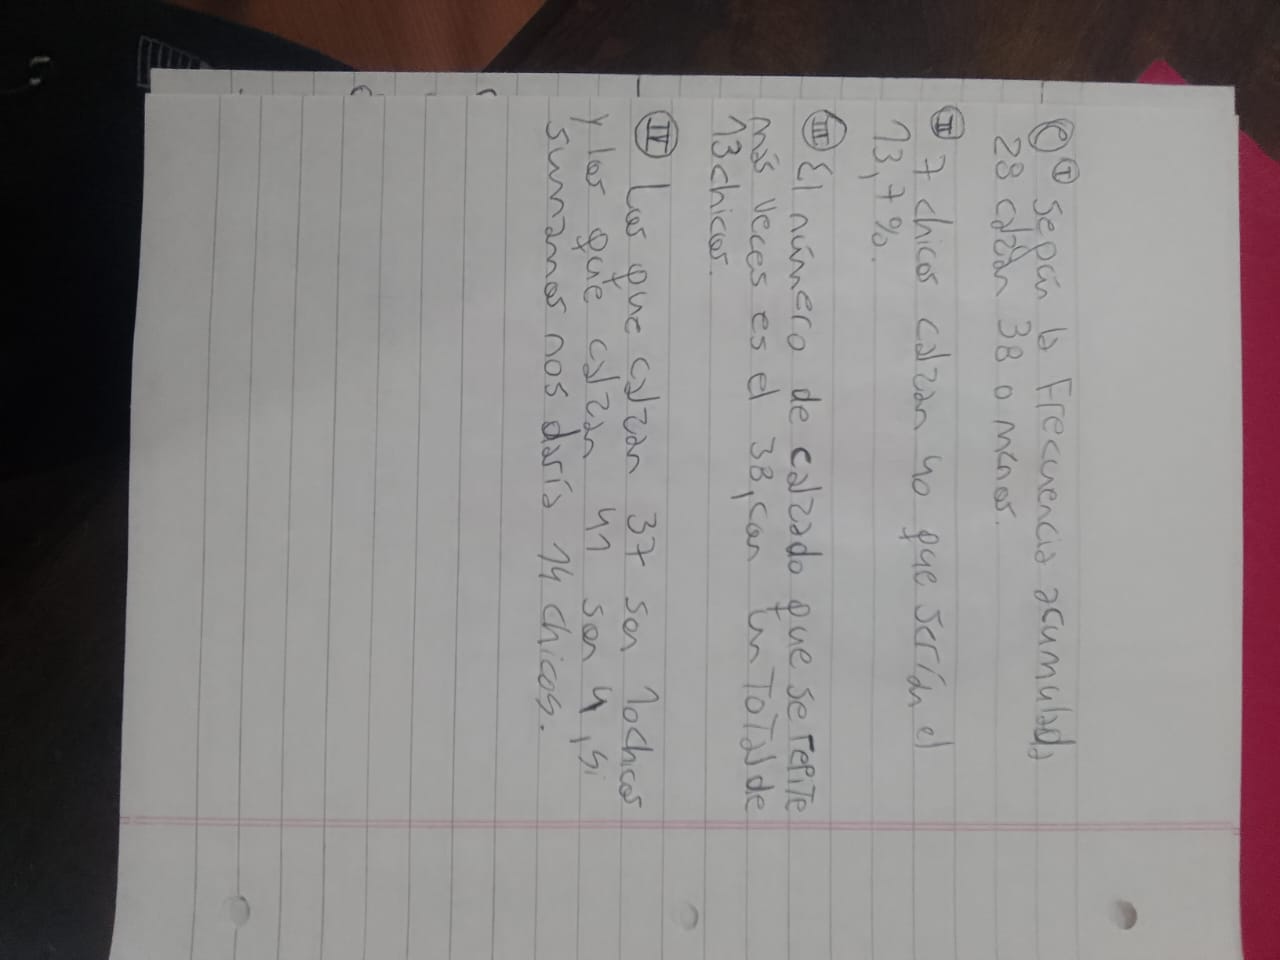 e) I Según la Frecuencia acumulada
28 calzan 38 o menos.
II 7 chicos calzan 40 que serían el
13,7%.
III El número de calzado que se repite
más veces es el 38, con un Total de
13 chicos.
IV Los que calzan 37 son 10 chicos
y los que calzan 41 son 4, si
sumamos nos daría 14 chicos.